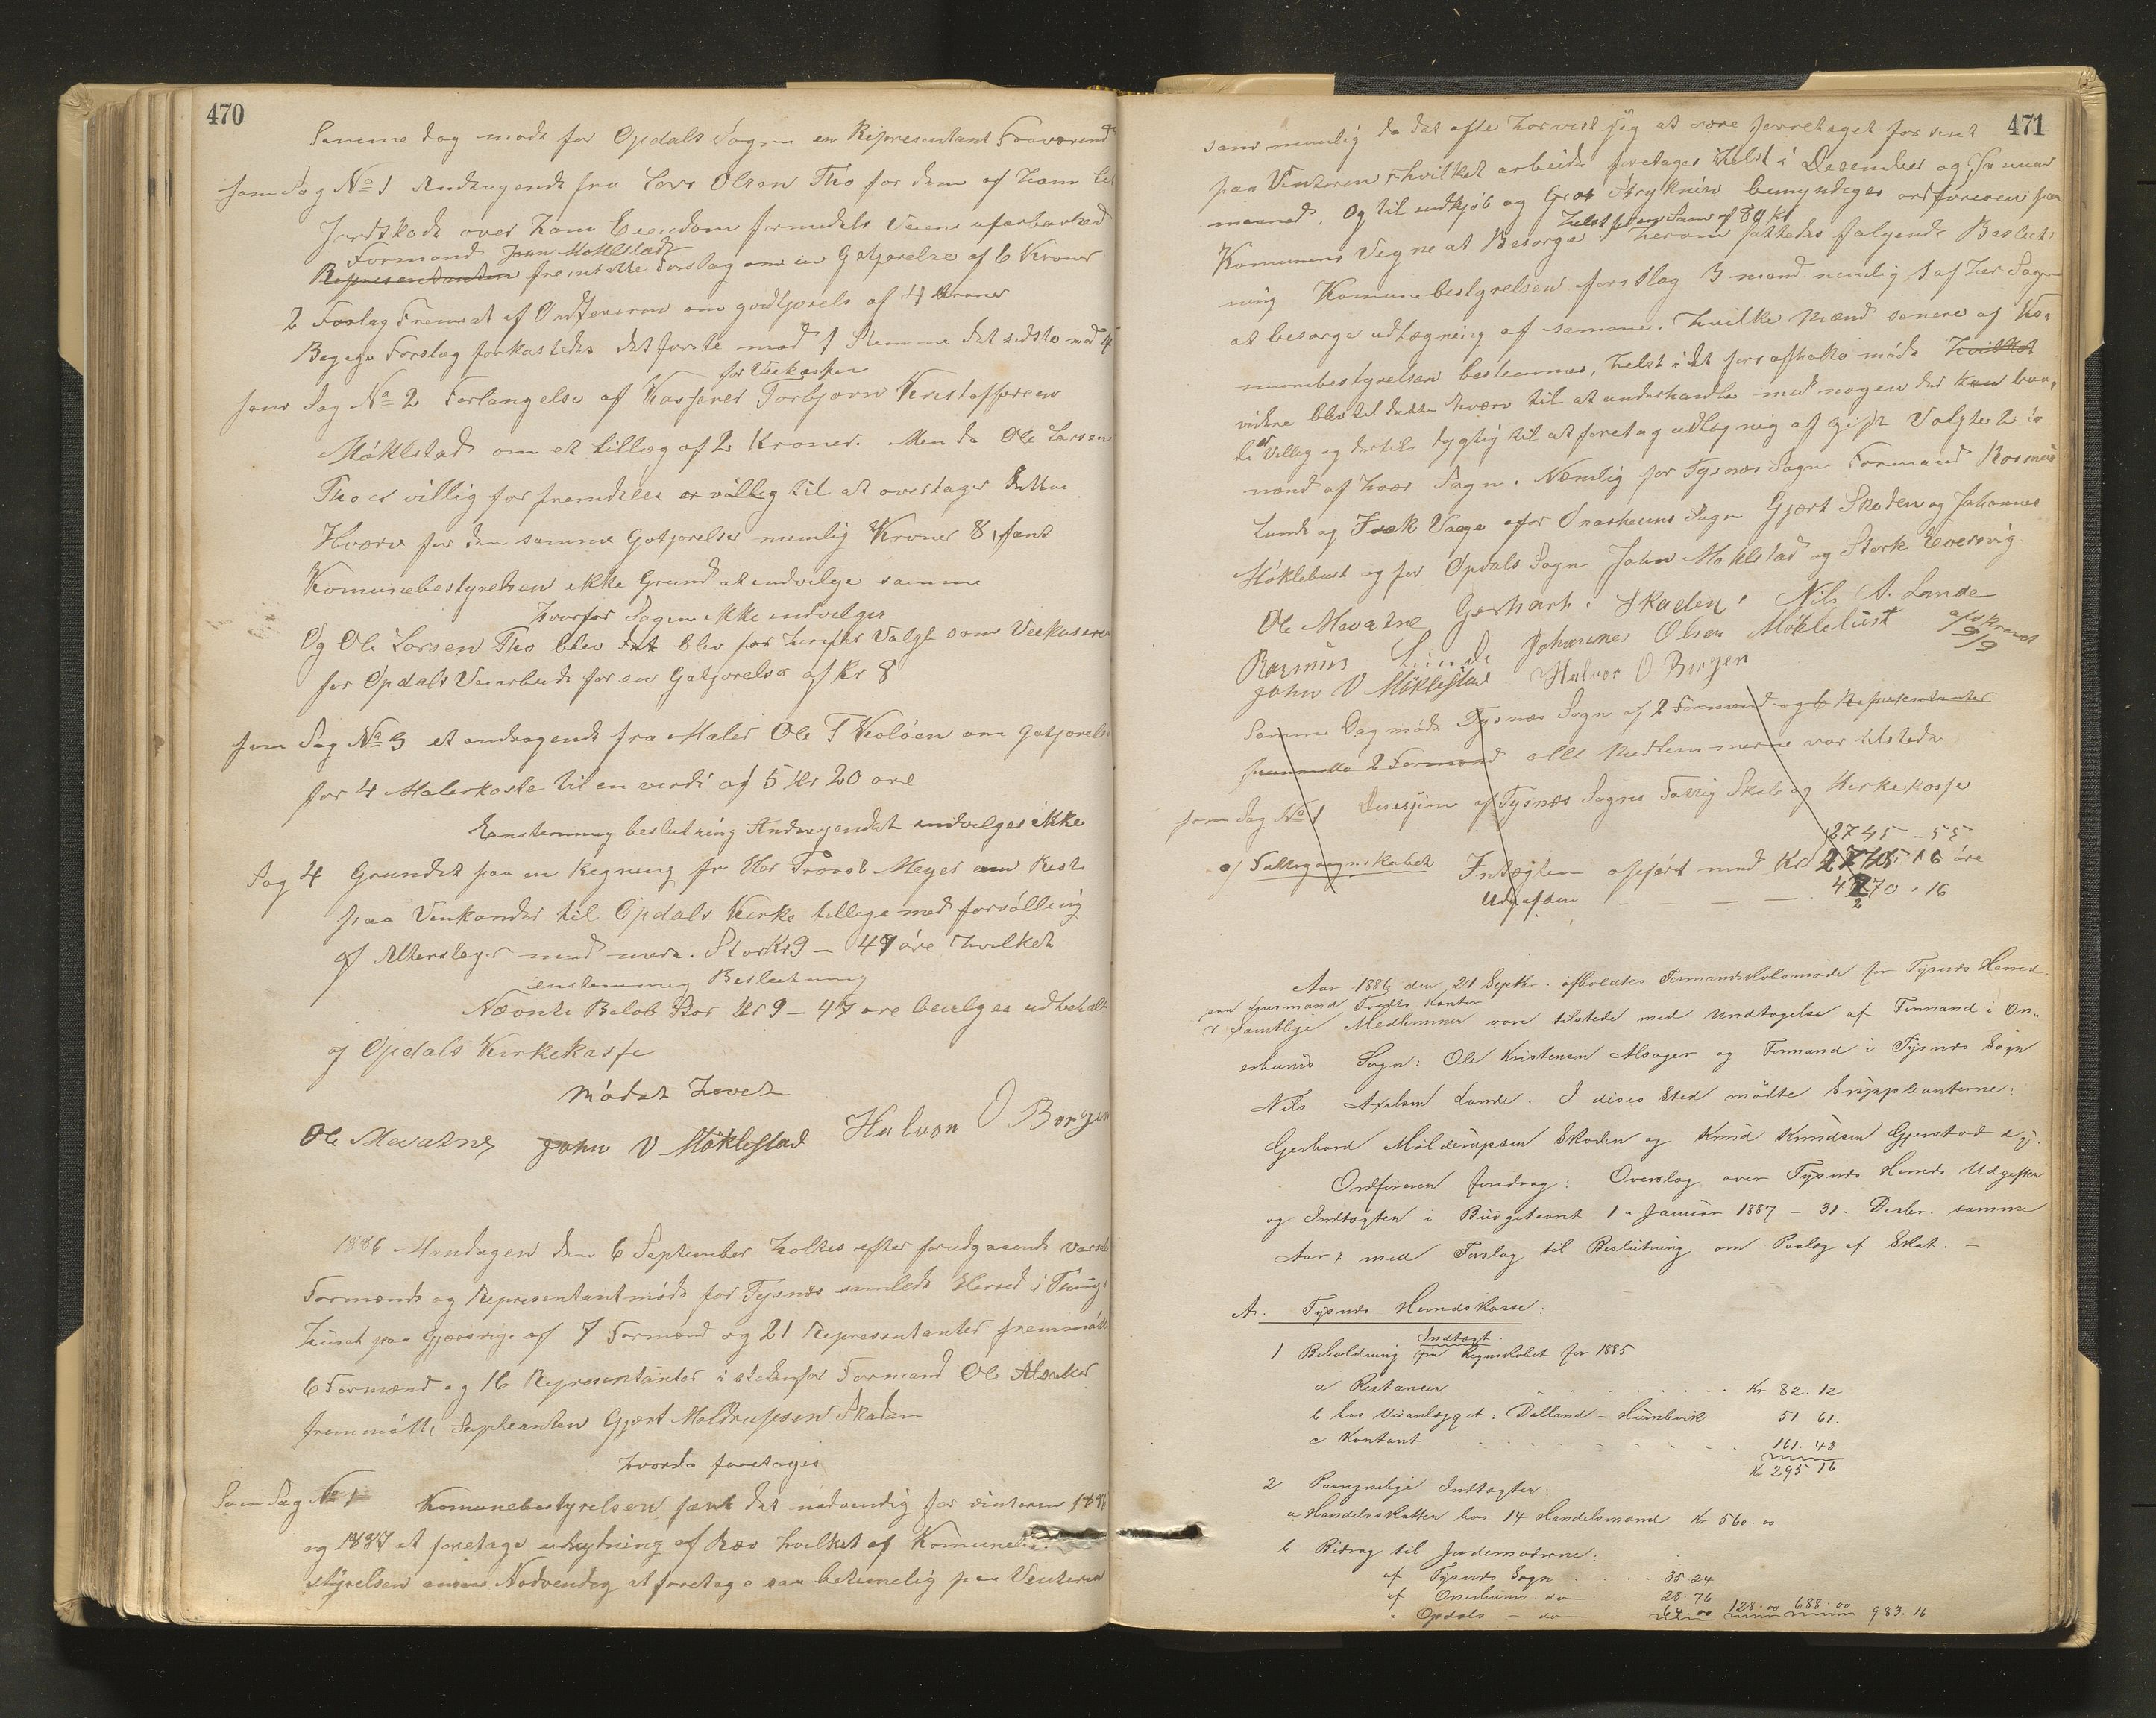 470
Samme dag møde for Opdals Sogn en Representant Fraværend
som Sag No 1 Andragende fra Lars Olsen Tho for den af ham
Jordskade over hans Eiendom formedelst Veiens ufarbarhed
Formand John Møklestad
Representanten fremsatte Forslag om en Gotjorelse af 6 Kroner
2 Forslag Fremsat af Ordføreren om godtjorels af 4 Kroner
Begge Forslag forkastedes det første mod 1 Stemme det sidste mod 4
for Veikassen
som Sag No 2 Forlangelse af Kasserer Torbjorn Kristoffersen
Møklstad om et tillæg af 2 Kroner. Men da Ole Larsen
Tho er villig for fremdeles er villig til at overtager dette
Hværv for den samme Gotjorelse nemlig Kroner 8, fant
Komunebestyrelsen ikke Grund at indvilge samme
hvorfor Sagen ikke indvilges
Og Ole Larsen Tho blev det blev for herefter Valgt som Veikaserer
for Opdals Veiarbeide for en Gotjorelse af Kr 8
som Sag No 3 et andragende fra Maler Ole T Koløen om Gotjorels
for 4 Malerkoste til en verdi af 5 Kr 20 øre
Enstemmig beslutning Andragendet indvilges ikke
Sag 4 Grundet paa en Regning fra Hr Provst Meyer om Rest
paa Vinkander til Opdals Kirke tillige med forsølling
af mud mere. Stor Kr 9 – 47 øre hvilket
enstemmig Beslutning
Nævnte Beløb Stor Kr 9 – 47 øre bevilges udbetalt
af Opdals Kirkekasse
Mødet hævet
Ole Mevatne John V Møklestad Halvor O Borgen
1886 Mandagen den 6 September holtes efter forudgaaende Varsel
Formænds og Representantmøde for Tysnæs samlede Herred i Thing
huset paa Gjærsvig. af 7 Formænd og 21 Representanter fremmøtt
6 Formænd og 16 Representanter i stedenfor Formand Ole Alsaker
fremmøtte Supleanten Gjert Moldrupsen Skaden
hvorda foretoges
Som Sag No 1 Komunebestyrelsen fant det nødvendig for vinteren 1886
og 1887 at foretage udrydning af Ræv hvilket af Komunebe
styrelsen ansees Nødvendig at foretage saa betimelig paa Vinteren
471
som mulig da det ofte har vist sig at være forretaget for sent
paa Vinteren, hvilket arbeide foretages helst i Desember og Januar
maaned. Og til indkjøb og Stryknin bemyndiges ordføreren paa
helst for en Sum af 80 Kr
Komunens Vegne at Besørge. herom fattedes følgende Beslut
ning Komunebestyrelsen forslag 3 mænd nemlig 1 af hver Sogn
at besørge udlægning af samme. hvilke Mænd senere af Ko-
munebestyrelsen bestemmes, helst i det først afholte møde hvilket
videre blev til dette hværv til at underhandle med nogen der kan
er Villig og dertil dygtig til at foretag udlægnig af Gift Valgte 2
mænd af hver Sogn. Nemlig for Tysnæs Sogn Formænd Rasmus
Lunde og Isak Vaage for Onarheims Sogn Gjert Skaden og Johannes
Møklebust og for Opdals Sogn John Møklstad og Stork Eversvig
Ole Mevatne Gerhart. Skaden. Nils A. Lande
Rasmus Lunde Johannes Olsen Møklebust
afskrevet
9/9
John V Møklestad Halvor O Borgen
Samme Dag møde Tysnæs Sogn af 2 Formænd og 6 Representanter
fremmøtte 2 Formænd alle Medlemmerne var tilstede
som Sag No 1 Desisjon af Tysnæs Sogns Fattig Skole og Kirkekasse
2745 – 55
a) Fattigregnskabet Indtægten opført med Kr 16 øre
Udgiften – – – – 4270 . 16
2
Aar 1886 den 21 Septbr. afholdtes Formandskabsmøde for Tysnæs Herred
paa Lensmand Kontor
Samtlige Medlemmer vare tilstede med Undtagelse af Formand i On-
erheims Sogn: Ole Kristensen Alsager og Formand i Tysnæs Sogn
Nils Axelsen Lunde. I dises Sted mødte Suppleanterne:
Gerhard Molderupsen Skaden og Knud Knudsen Gjerstad
Ordføreren foredrag: Overslag over Tysnæs Herreds Udgifter
og Indtægter i Budgetaaret 1ste Januar 1887 – 31. Decbr. samme
Aar med Forslag til Beslutning om Paalæg af Skat. –
A. Tysnæs Herredskasse:
Indtægt.
1 Beholdning fra Regnskabet for 1885
a Restancer Kr 82. 12
b hos Veianlægget: Dalland – Humlevik 51 61.
c Kontant 161. 43
Kr 295 16
2 Paaregnelige Indtægter:
a Handelsskatten hos 14 Handelsmænd Kr 560. 00
b Bidrag til Jordemødrene:
af Tysnæs Sogn 35 24
af Onerheims do 28. 76
" Opdals – do 64. 00 128. 00 688. 00 983. 16